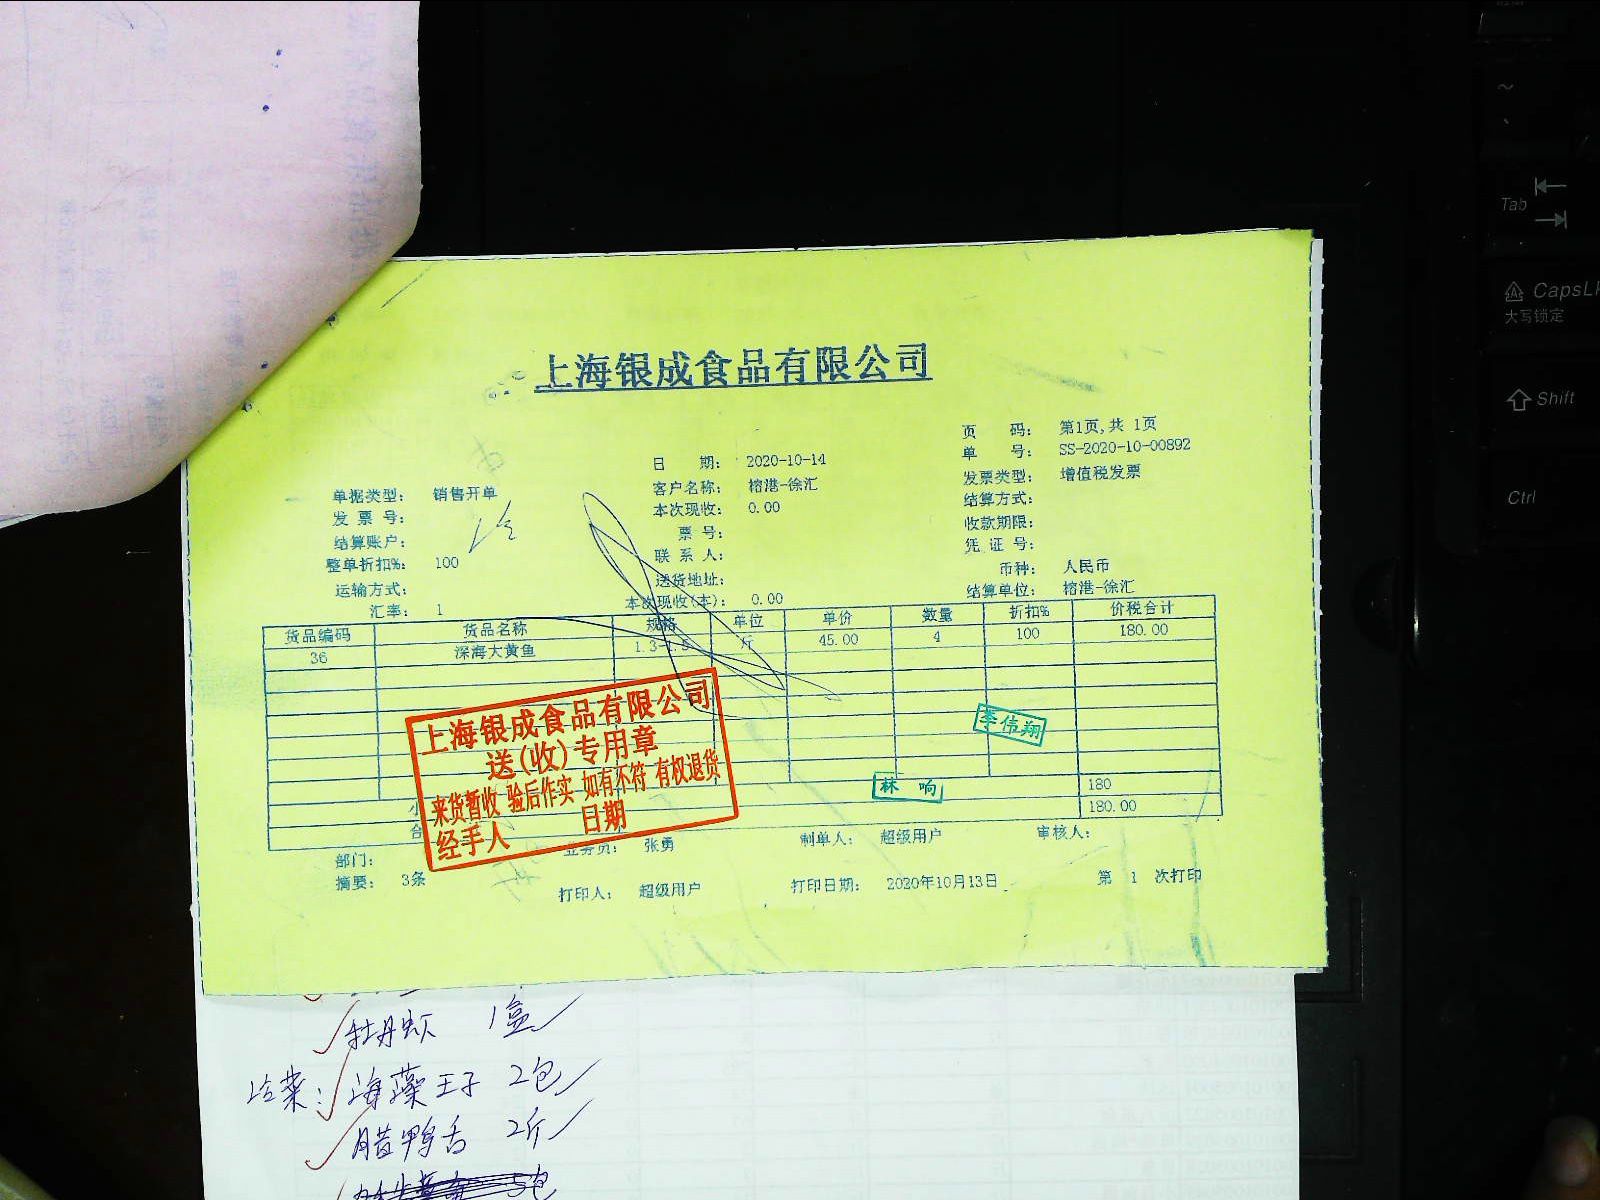 上海银成食品有限公司
页 码： 第1页,共 1页
日 期： 2020-10-14 单 号： SS-2020-10-00892
单据类型： 销售开单 客户名称： 榕港-徐汇 发票类型： 增值税发票
发 票 号： 本次现收： 0.00 结算方式：
结算账户： 票 号： 收款期限：
整单折扣%： 100 联 系 人： 凭 证 号：
运输方式： 送货地址： 币种： 人民币
汇率： 1 本次现收(本)： 0.00 结算单位： 榕港-徐汇
货品编码 货品名称 规格 单位 单价 数量 折扣% 价税合计
36 深海大黄鱼 1.3-1.5 斤 45.00 4 100 180.00
上海银成食品有限公司
送(收)专用章
来货暂收 验后作实 如有不符 有权退货
经手人 日期
李伟翔
林 响
小 180
合 180.00
部门： 业务员： 张勇 制单人： 超级用户 审核人：
摘要： 3条 打印人： 超级用户 打印日期： 2020年10月13日 第 1 次打印
牡丹虾 1盒
冷菜： 海藻王子 2包
腊鸭舌 2斤
5包
Tab
CapsL
大写锁定
Shift
Ctrl